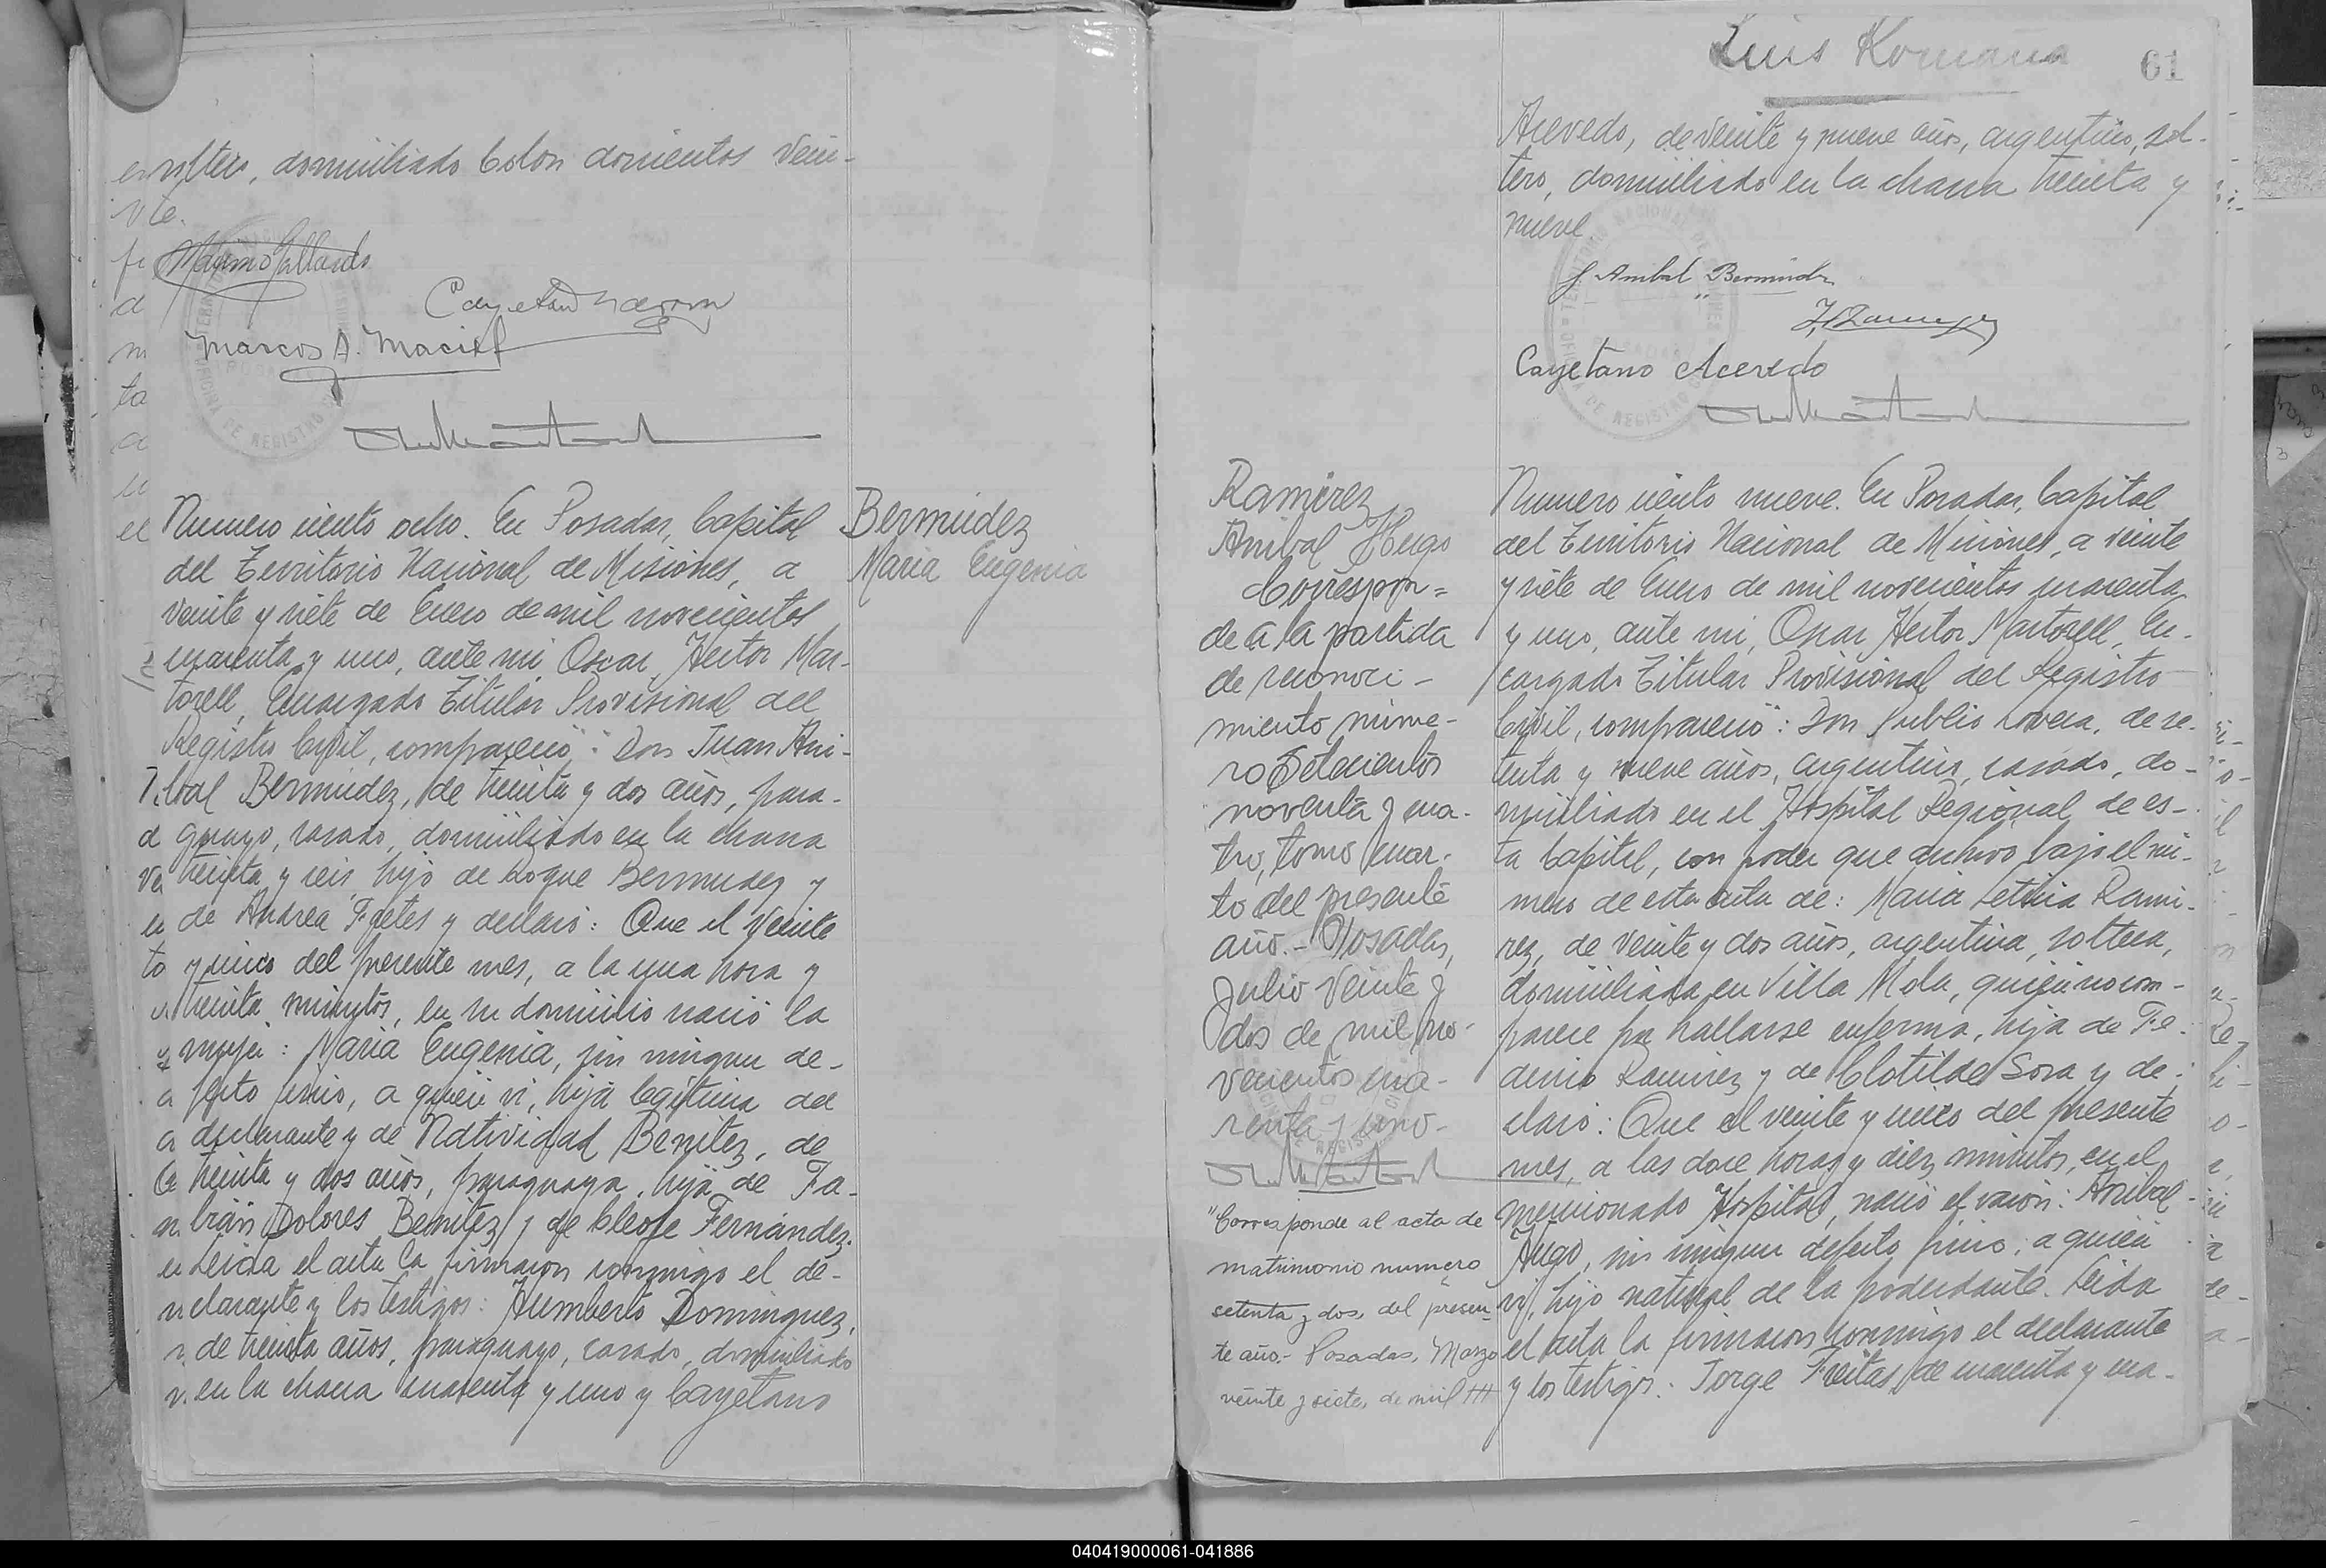 soltero, domiciliado Colon doscientos vein-
te.
Maximo Gallardo
Cayetano
Marcos A. Maciel
Numero ciento ocho. En Posadas, Capital
del Territorio Nacional de Misiones, a
veinte y siete de Enero de mil novecientos
cuarenta y uno, ante mi Oscar Hector Mar-
torell, Encargado Titular Provisional del
Registro Civil, compareció: Don Juan Ani-
bal Bermúdez, de treinta y dos años, para-
guayo, casado, domiciliado en la chacra
treinta y seis, hijo de Roque Bermudez y
de Andrea Fretes y declaró: Que el veinte
y cinco del presente mes, a la una hora y
treinta minutos, en su domicilio nació la
mujer: María Eugenia, sin ningun de-
fecto fisico, a quien vi, hija legitima del
declarante y de Natividad Benitez, de
treinta y dos años, paraguaya, hija de Fa-
bián Dolores Benitez y de Cleofe Fernández.
Leida el acta la firmaron conmigo el de-
clarante y los testigos: Humberto Dominguez,
de treinta años, paraguayo, casado, domiciliado
en la chacra cuarenta y uno y Cayetano
Bermúdez
María Eugenia
Luis Romaña
61
Acevedo, de veinte y nueve años, argentino, sol-
tero, domiciliado en la chacra treinta y
nueve.
J Anibal Bermúdez
Cayetano Acevedo
Ramírez
Anibal Hugo
Correspon=
de a la partida
de reconoci-
miento núme-
ro Setecientos
noventa y cua-
tro, tomo cuar-
to del presente
año.- Posadas,
Julio veinte y
dos de mil no-
vecientos cua-
renta y uno-
"Corresponde al acta de
matrimonio numero
setenta y dos, del presen-
te año.- Posadas, Marzo
veinte y siete, de mil ///
Numero ciento nueve. En Posadas, Capital
del Territorio Nacional de Misiones, a veinte
y siete de Enero de mil novecientos cuarenta
y uno, ante mi, Oscar Hector Martorell, En-
cargado Titular Provisional del Registro
Civil, compareció: Don Publio Lovera, de se-
tenta y nueve años, argentino, casado, do-
miciliado en el Hospital Regional de es-
ta Capital, con poder que archivo bajo el nú-
mero de esta acta de: María Leticia Rami-
rez, de veinte y dos años, argentina, soltera,
domiciliada en Villa Mola, quien no com-
parece por hallarse enferma, hija de Fe-
derico Ramirez y de Clotilde Sosa y de-
claró: Que el veinte y cinco del presente
mes, a las doce horas y diez minutos, en el
mencionado Hospital, nació el varón: Anibal
Hugo, sin ningun defecto fisico, a quien
vi, hijo natural de la poderdante. Leida
el acta la firmaron conmigo el declarante
y los testigos: Jorge Freitas, de cuarenta y cua-
040419000061-041886